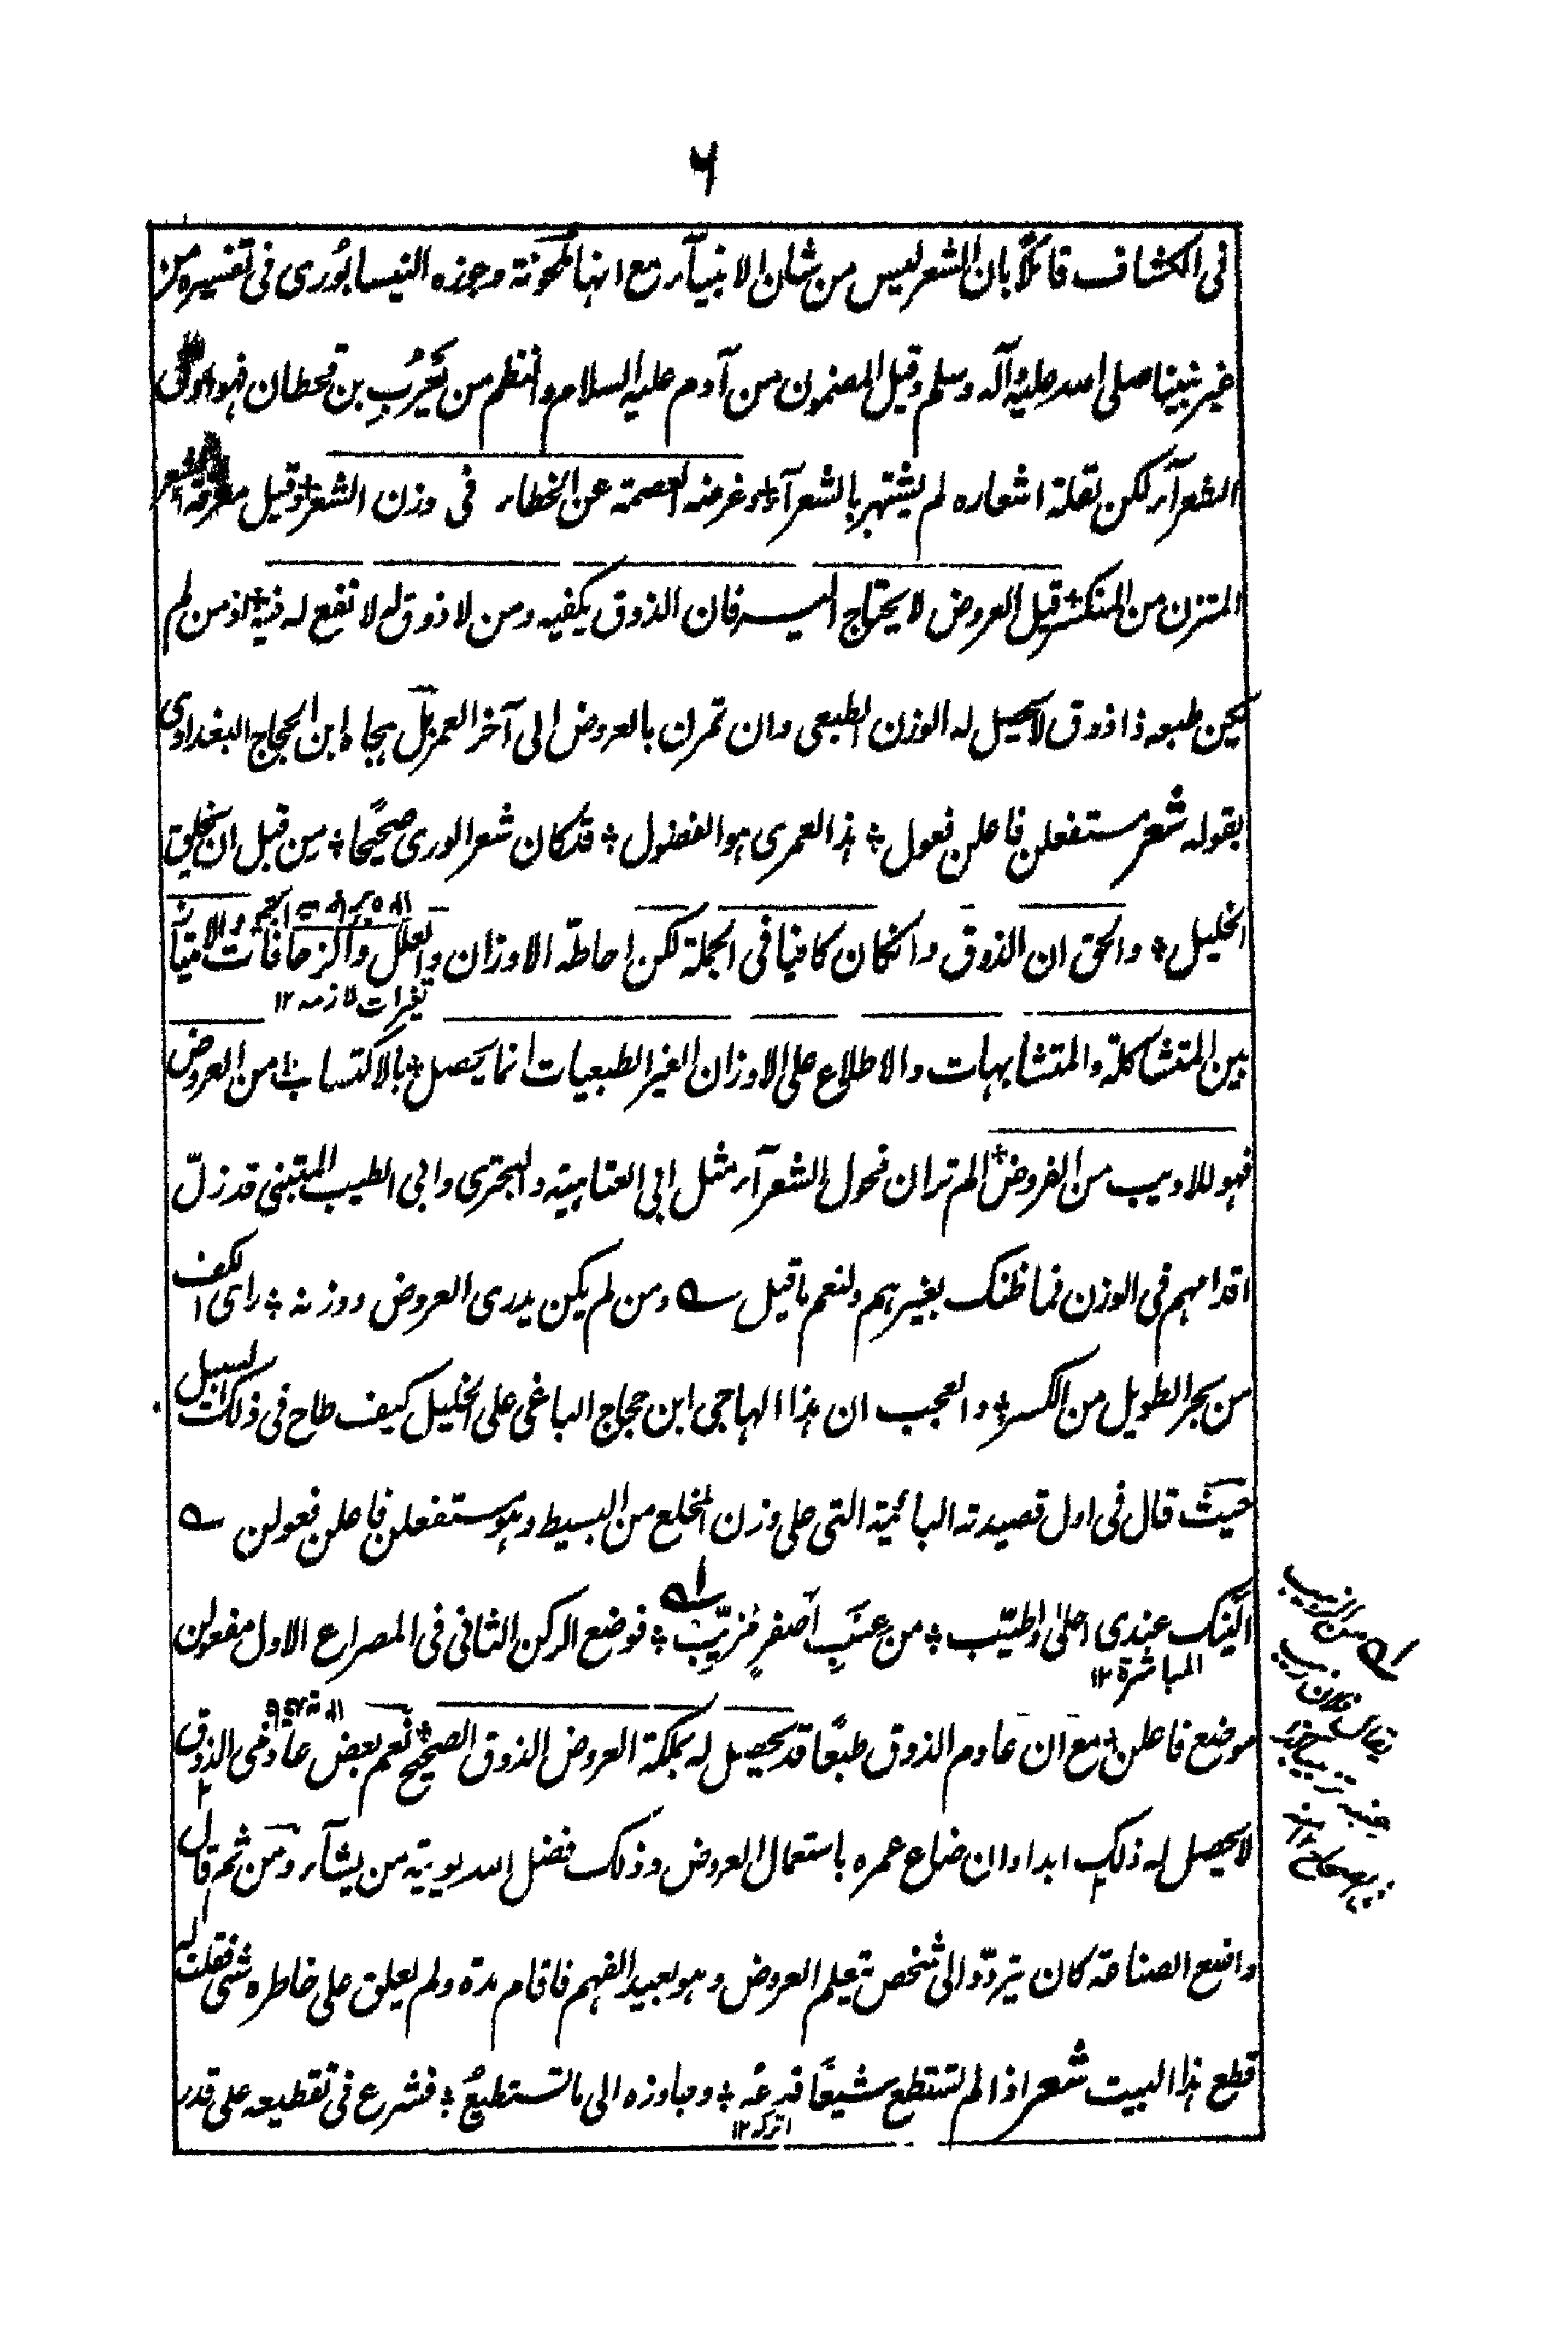 ٦
فى الكشاف قائلاً بان الشعر ليس من شان الانبيآء مع انها ملحونة وجوزه النيسابُورى فى تفسيره من
غير نبينا صلى الله عليه وآله وسلم وقيل المضمون من آدم عليه السلام والنظم من يَعْرُبِ بن قحطان فهو اول
الشعرآء لكن لقلة اشعاره لم يشتهر بالشعرآء وغرضه العصمة عن الخطاء فى وزن الشعر وقيل معرفة الشعر
المتزن من المنكسر قيل العروض لا يحتاج اليه فان الذوق يكفيه ومن لا ذوق له لا نفع له فيه اذ من لم
يكن طبعه ذا ذوق لا يحصل له الوزن الطبعى وان تمرن بالعروض الى آخر العمر بل هجاه ابن الحجاج البغدادى
بقوله شعر مستفعلن فاعلن فعول ؞ هذا لعمرى هو الفضول ؞ قد كان شعر الورى صحيحًا ؞ من قبل ان يخلق
الخليل ؞ والحق ان الذوق وان كان كافيا فى الجملة لكن احاطة الاوزان والعلل والزحافات والامتياز
تغيرات لازمه ١٢
بين المتشاكلة والمتشابهات والاطلاع على الاوزان الغير الطبعيات انما يحصل بالاكتساب من العروض
فهو للاديب من الفروض الم تر ان فحول الشعرآء مثل ابى العتاهية والبحترى وابى الطيب المتنبى قد زلّ
اقدامهم فى الوزن فما ظنك بغيرهم ولنعم ما قيل ؎ ومن لم يكن يدرى العروض ووزنه ؞ راى الكف
من بحر الطويل من الكسر ؞ والعجب ان هذا الهاجى ابن حجاج الباغى على الخليل كيف طاح فى ذلك السبيل
حيث قال فى اول قصيدته البائية التى على وزن المخلع من البسيط وهو مستفعلن فاعلن فعولن ؎
النيك عندى احلىٰ واطيّب ؞ من عنب اصفر مُزبّب ؞ فوضع الركن الثانى فى المصراع الاول مفعولن
المباشرة ١٢
موضع فاعلن مع ان عادم الذوق طبعًا قد يحصل له بملكة العروض الذوق الصحيح نعم بعض عادمى الذوق
لا يحصل له ذلك ابدا وان ضاع عمره باستعمال العروض وذلك فضل الله يوتيه من يشآء ومن ثم قال
واضع الصناعة كان يتردّد الى شخص يتعلم العروض وهو بعيد الفهم فاقام مدة ولم يعلق على خاطره شئ فقلت له
قطع هذا البيت شعر اذا لم تستطع شيئًا فدعْه ؞ وجاوزه الى ما تستطيعُ ؞ فشرع فى تقطيعه على قدر
اترك ١٢
من الزبيب